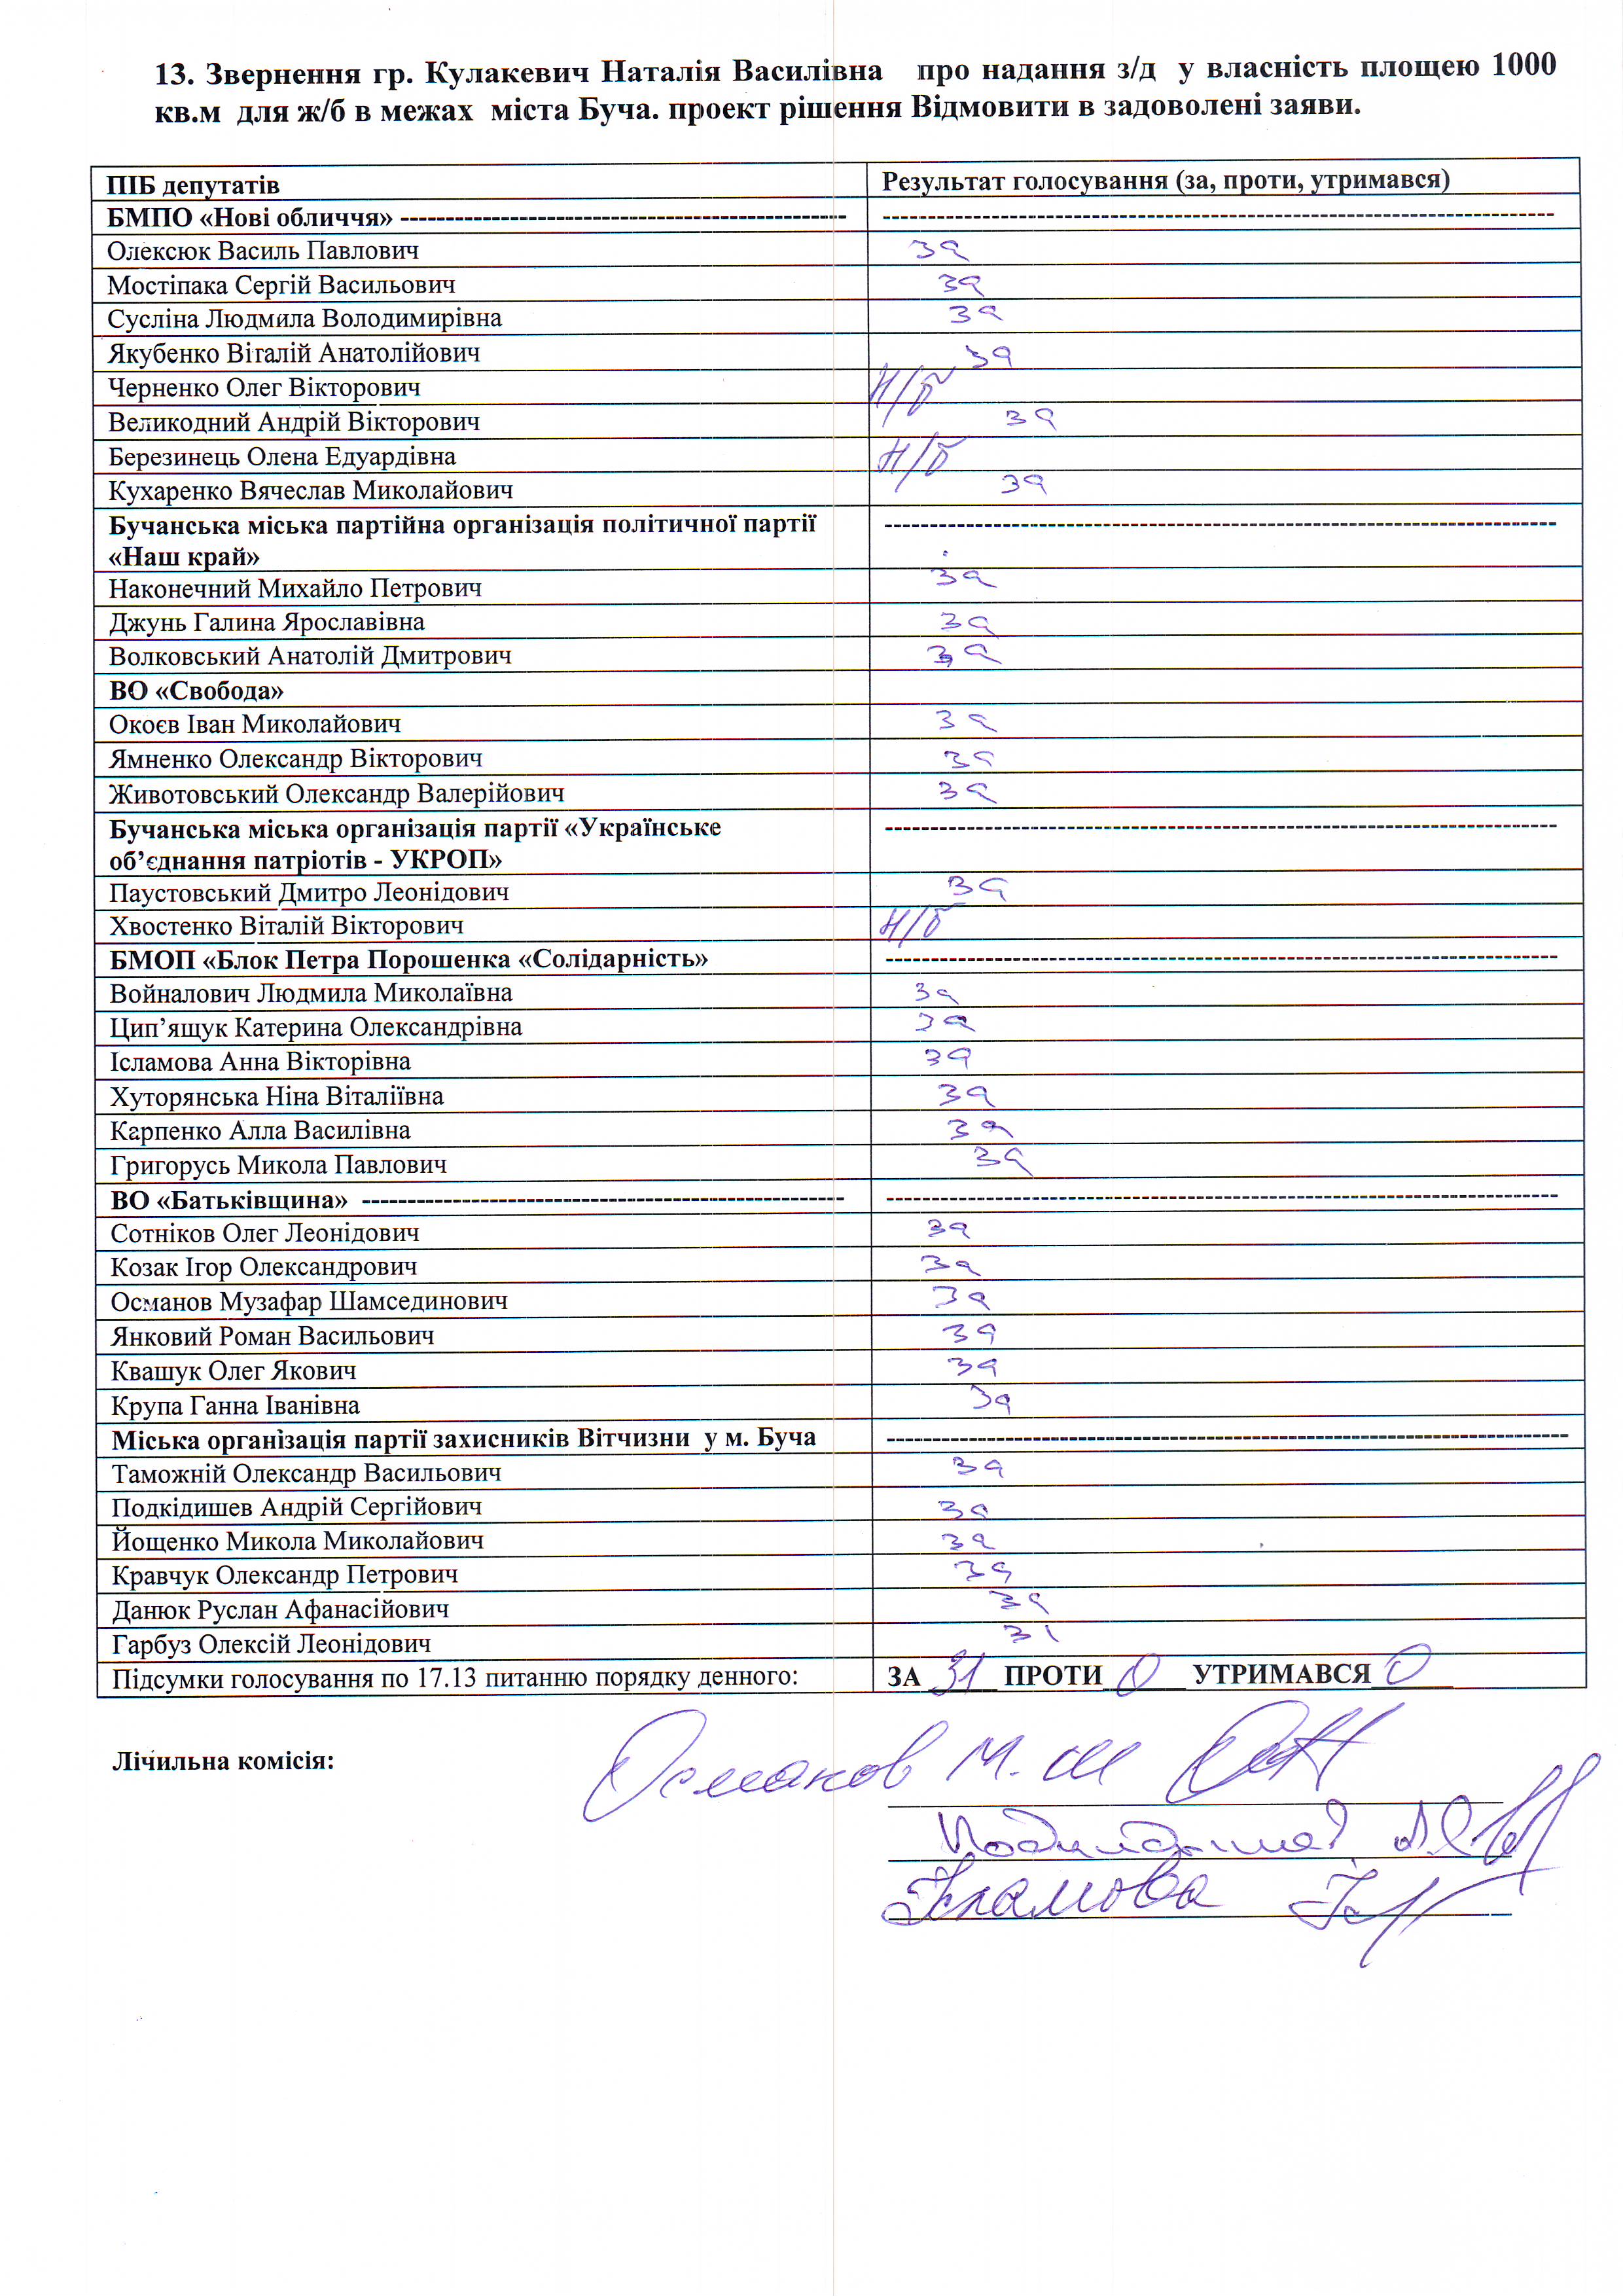 13. Звернення гр. Кулакевич Наталія Василівна про надання з/д у власність площею 1000
кв.м для ж/б в межах міста Буча. проект рішення Відмовити в задоволені заяви.
ПІБ депутатів Результат голосування (за, проти, утримався)
БМПО «Нові обличчя» ------------------------------------------------- --------------------------------------------------------------------------
Олексюк Василь Павлович за
Мостіпака Сергій Васильович за
Сусліна Людмила Володимирівна за
Якубенко Віталій Анатолійович за
Черненко Олег Вікторович н/б
Великодний Андрій Вікторович за
Березинець Олена Едуардівна н/б
Кухаренко Вячеслав Миколайович за
Бучанська міська партійна організація політичної партії --------------------------------------------------------------------------
«Наш край»
Наконечний Михайло Петрович за
Джунь Галина Ярославівна за
Волковський Анатолій Дмитрович за
ВО «Свобода»
Окоєв Іван Миколайович за
Ямненко Олександр Вікторович за
Животовський Олександр Валерійович за
Бучанська міська організація партії «Українське --------------------------------------------------------------------------
об’єднання патріотів - УКРОП»
Паустовський Дмитро Леонідович за
Хвостенко Віталій Вікторович н/б
БМОП «Блок Петра Порошенка «Солідарність» --------------------------------------------------------------------------
Войналович Людмила Миколаївна за
Цип’ящук Катерина Олександрівна за
Ісламова Анна Вікторівна за
Хуторянська Ніна Віталіївна за
Карпенко Алла Василівна за
Григорусь Микола Павлович за
ВО «Батьківщина» ----------------------------------------------------- --------------------------------------------------------------------------
Сотніков Олег Леонідович за
Козак Ігор Олександрович за
Османов Музафар Шамсединович за
Янковий Роман Васильович за
Квашук Олег Якович за
Крупа Ганна Іванівна за
Міська організація партії захисників Вітчизни у м. Буча ---------------------------------------------------------------------------
Таможній Олександр Васильович за
Подкідишев Андрій Сергійович за
Йощенко Микола Миколайович за
Кравчук Олександр Петрович за
Данюк Руслан Афанасійович за
Гарбуз Олексій Леонідович за
Підсумки голосування по 17.13 питанню порядку денного: ЗА 31 ПРОТИ 0 УТРИМАВСЯ 0
Лічильна комісія: Османов М. Ш
Ісламова